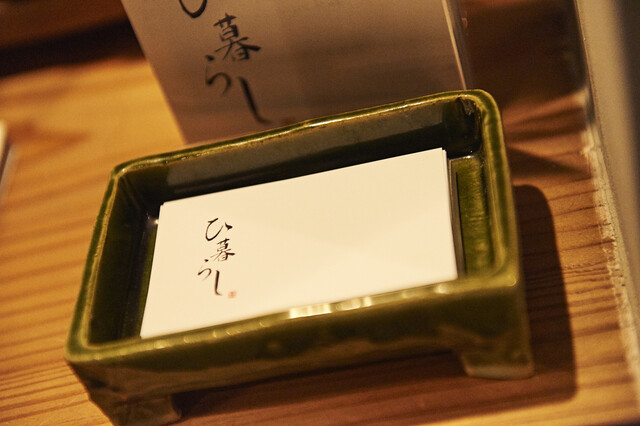 ひ暮らし
ひ暮らし